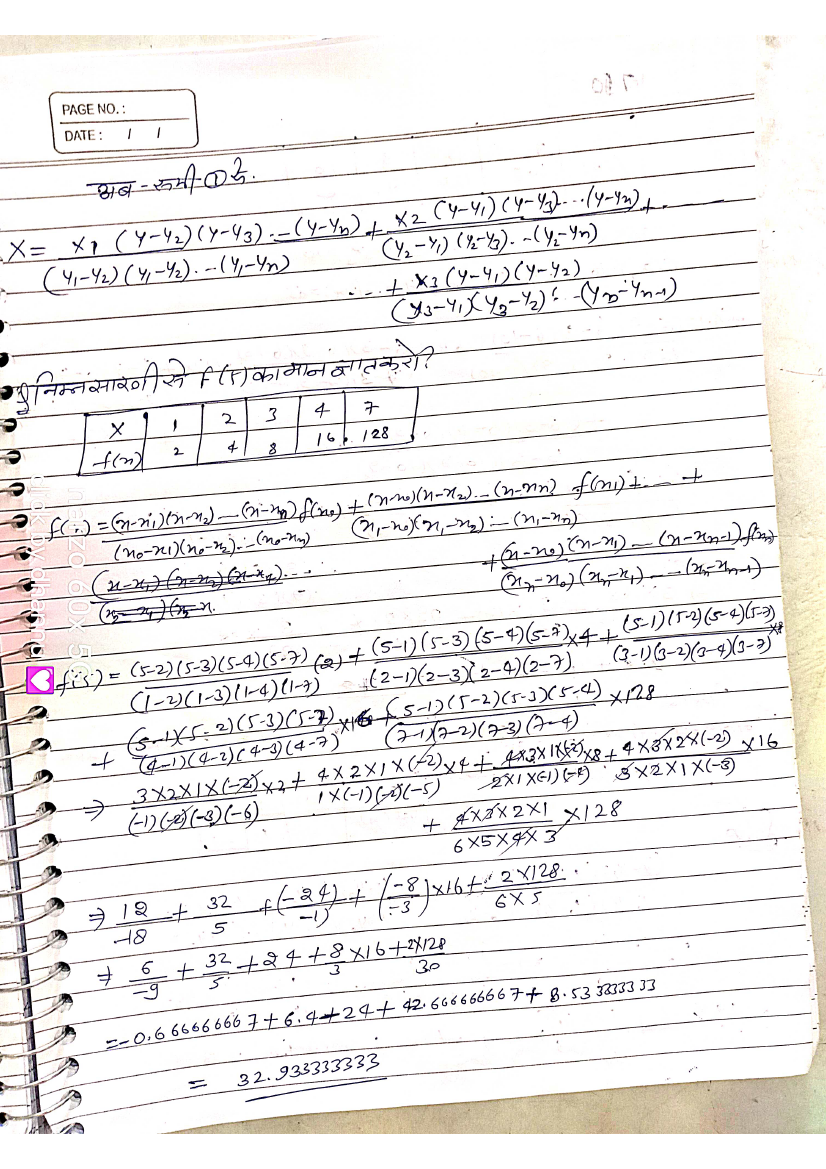 PAGE NO. :
DATE : / /
अब - समी-① से.
X = x1 (y-y2)(y-y3)...(y-yn) / (y1-y2)(y1-y2)...(y1-yn) + x2 (y-y1)(y-y3)...(y-yn) / (y2-y1)(y2-y3)...(y2-yn) + ......
... + x3 (y-y1)(y-y2) / (y3-y1)(y3-y2)...(yn-yn-1)
निम्न सारणी से f(5) का मान ज्ञात करो?
x 1 2 3 4 7
f(x) 2 4 8 16 128
= (x-x1)(x-x2)...(x-xn) / (x0-x1)(x0-x2)...(x0-xn) f(x0) + (x-x0)(x-x2)...(x-xn) / (x1-x0)(x1-x2)...(x1-xn) f(x1) + ... +
+ (x-x0)(x-x1)...(x-xn-1) / (xn-x0)(xn-x1)...(xn-xn-1) f(xn)
f(5) = (5-2)(5-3)(5-4)(5-7) / (1-2)(1-3)(1-4)(1-7) (2) + (5-1)(5-3)(5-4)(5-7) / (2-1)(2-3)(2-4)(2-7) ×4 + (5-1)(5-2)(5-4)(5-7) / (3-1)(3-2)(3-4)(3-7) ×8
+ (5-1)(5-2)(5-3)(5-7) / (4-1)(4-2)(4-3)(4-7) ×16 + (5-1)(5-2)(5-3)(5-4) / (7-1)(7-2)(7-3)(7-4) ×128
⇒ 3×2×1×(-2) / (-1)(-2)(-3)(-6) ×2 + 4×2×1×(-2) / 1×(-1)(-2)(-5) ×4 + 4×3×1×(-2) / 2×1×(-1)(-4) ×8 + 4×3×2×(-2) / 3×2×1×(-3) ×16
+ 4×3×2×1 / 6×5×4×3 ×128
⇒ 12/-18 + 32/5 + (-24)/-1) + (-8/-3)×16 + 2×128 / 6×5
⇒ 6/-9 + 32/5 + 24 + 8/3 ×16 + 2×128/30
= -0.666666667 + 6.4 + 24 + 42.666666667 + 8.533333333
= 32.933333333